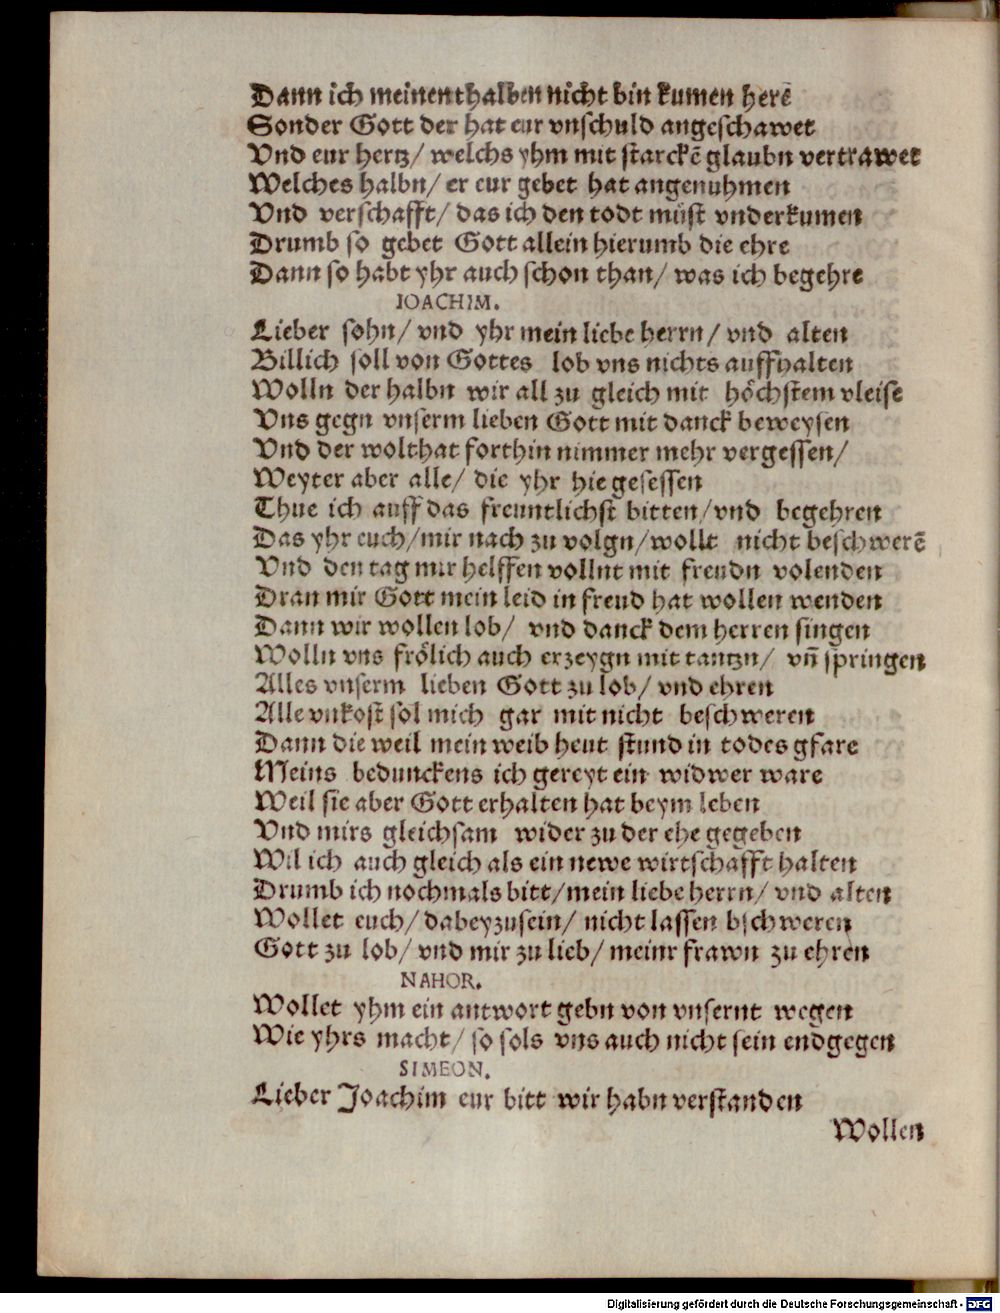 Dann ich meinenthalben nicht bin kumen herē
Sonder Gott der hat eur vnschuld angeschawet
Vnd eur hertz/ welchs yhm mit starckē glaubn vertrawet
Welches halbn/ er eur gebet hat angenuhmen
Vnd verschafft/ das ich den todt müst vnderkumen
Drumb so gebet Gott allein hierumb die ehre
Dann so habt yhr auch schon than/ was ich begehre
IOACHIM.
Lieber sohn/ vnd yhr mein liebe herrn/ vnd alten
Billich soll von Gottes lob vns nichts auffhalten
Wolln der halbn wir all zu gleich mit höchstem vleise
Vns gegn vnserm lieben Gott mit danck beweysen
Vnd der wolthat forthin nimmer mehr vergessen/
Weyter aber alle/ die yhr hie gesessen
Thue ich auff das freuntlichst bitten/ vnd begehren
Das yhr euch/ mir nach zu volgn/ wollt nicht beschwerē
Vnd den tag mir helffen vollnt mit freudn volenden
Dran mir Gott mein leid in freud hat wollen wenden
Dann wir wollen lob/ vnd danck dem herren singen
Wolln vns frölich auch erzeygn mit tantzn/ vn̄ springen
Alles vnserm lieben Gott zu lob/ vnd ehren
Alle vnkost sol mich gar mit nicht beschweren
Dann die weil mein weib heut stund in todes gfare
Meins bedunckens ich gereyt ein widwer ware
Weil sie aber Gott erhalten hat beym leben
Vnd mirs gleichsam wider zu der ehe gegeben
Wil ich auch gleich als ein newe wirtschafft halten
Drumb ich nochmals bitt/ mein liebe herrn/ vnd alten
Wollet euch/ dabeyzusein/ nicht lassen bschweren
Gott zu lob/ vnd mir zu lieb/ meinr frawn zu ehren
NAHOR.
Wollet yhm ein antwort gebn von vnsernt wegen
Wie yhrs macht/ so sols vns auch nicht sein endgegen
SIMEON.
Lieber Joachim eur bitt wir habn verstanden
Wollen
Digitalisierung gefördert durch die Deutsche Forschungsgemeinschaft - DFG